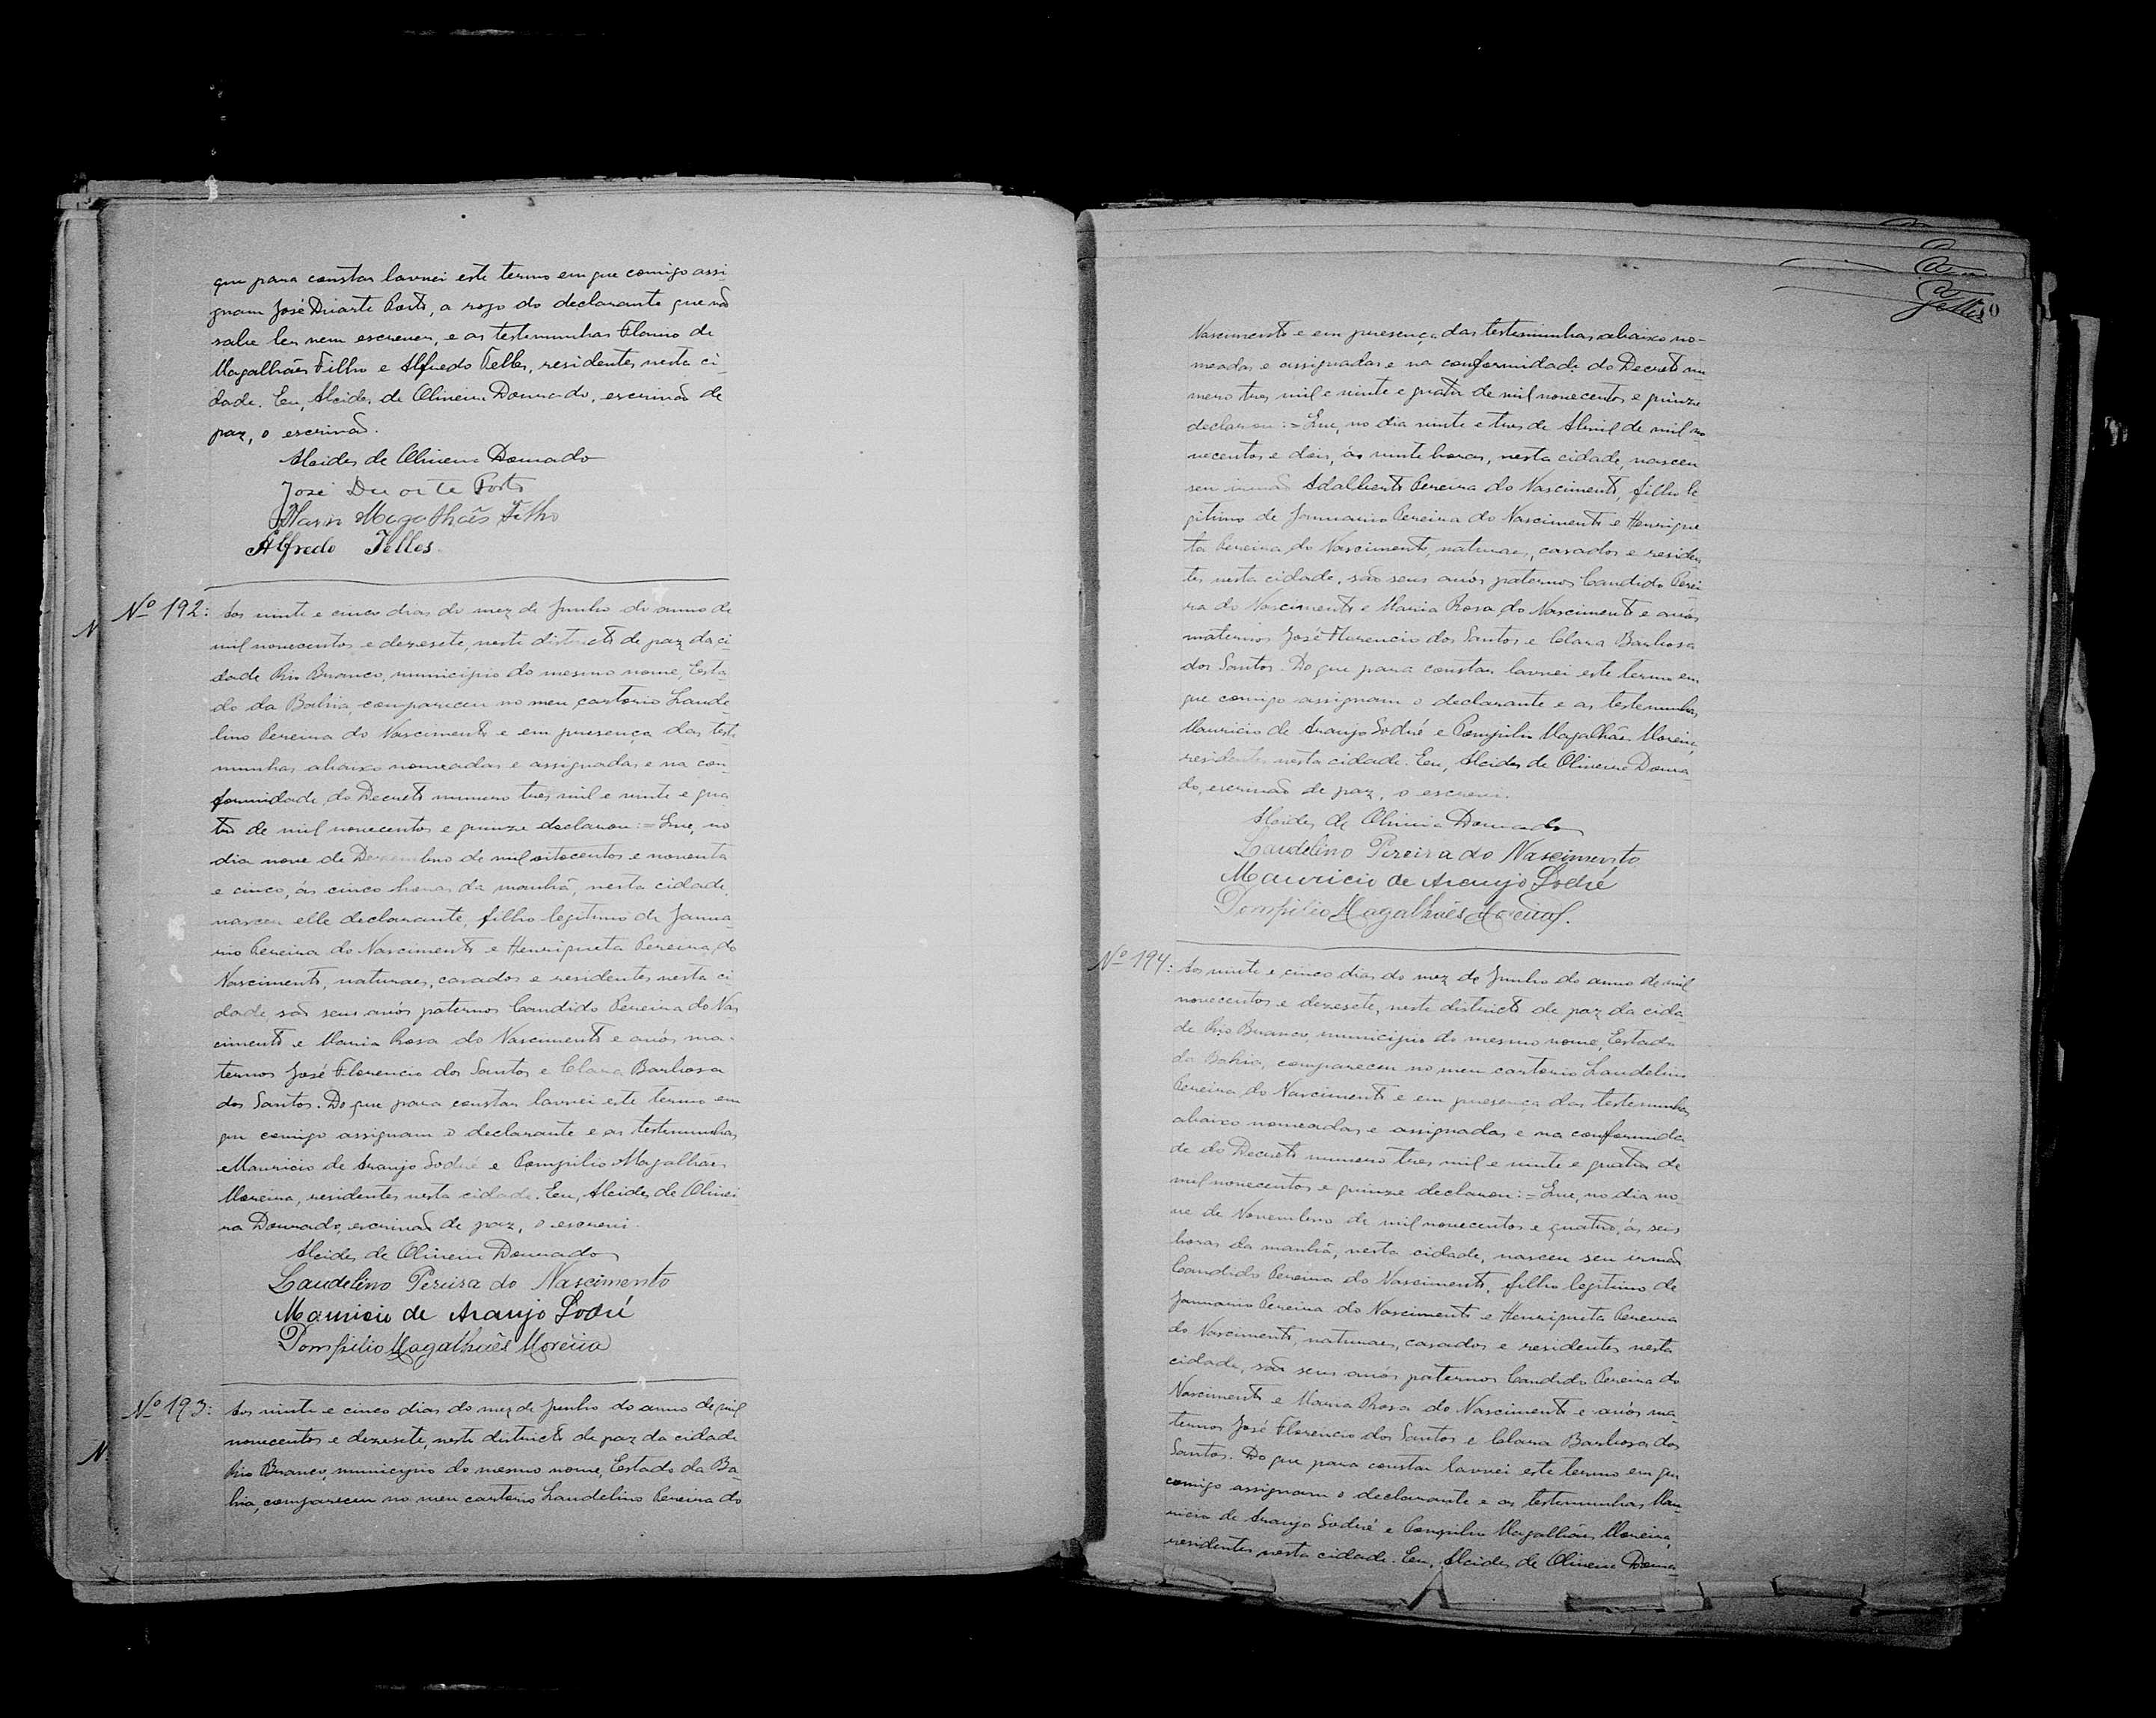 que para constar lavrei este termo em que comigo assi
gnam José Duarte Porto, a rogo do declarante que não
sabe ler nem escrever, e as testemunhas Flavio de
Magalhães Filho e Alfredo Telles, residentes nesta ci
dade. Eu, Alcides de Oliveira Dourado, escrivão de
paz, o escrivão.
Alcides de Oliveira Dourado
José Duarte Porto
Magalhães Filho
Alfredo Telles
Nº 192: Aos vinte e cinco dias do mez de Junho do anno de
mil novecentos e dezesete, neste districto de paz da ci-
dade Rio Branco, municipio do mesmo nome, Esta-
do da Bahia, compareceu no meu cartorio Laude-
lino Pereira do Nascimento e em presença das teste
munhas abaixo nomeadas e assignadas e na con-
formidade do Decreto numero tres mil e vinte e qua
tro de mil novecentos e quinze declarou: = Que, no
dia nove de Dezembro de mil oitocentos e noventa
e cinco, ás cinco horas da manhã, nesta cidade,
nasceu elle declarante, filho legitimo de Janua-
rio Pereira do Nascimento e Henriqueta Pereira do
Nascimento, naturaes, casados e residentes nesta ci
dade, são seus avós paternos Candido Pereira do Nas
cimento e Maria Rosa do Nascimento e avós ma-
ternos José Florencio dos Santos e Clara Barbosa
dos Santos. Do que para constar lavrei este termo em
que comigo assignam o declarante e as testemunhas
Mauricio de Araujo Sodré e Pompilio Magalhães
Moreira, residentes nesta cidade. Eu, Alcides de Olivei
ra Dourado, escrivão de paz, o escrevi.
Alcides de Oliveira Dourado
Laudelino Pereira do Nascimento
Mauricio de Araujo Sodré
Pompilio Magalhães Moreira
Nº 193: Aos vinte e cinco dias do mez de Junho do anno de mil
novecentos e dezesete, neste districto de paz da cidade
Rio Branco, municipio do mesmo nome, Estado da Ba-
hia, compareceu no meu cartorio Laudelino Pereira do
Telles
Nascimento e em presença das testemunhas abaixo no-
meadas e assignadas e na conformidade do Decreto nu
mero tres mil e vinte e quatro de mil novecentos e quinze
declarou: = Que, no dia vinte e tres de Abril de mil no
vecentos e dois, ás vinte horas, nesta cidade, nasceu
seu irmão Adalberto Pereira do Nascimento, filho le
gitimo de Januario Pereira do Nascimento e Henrique
ta Pereira do Nascimento, naturaes, casados e residen
tes nesta cidade, são seus avós paternos Candido Perei
ra do Nascimento e Maria Rosa do Nascimento e avós
maternos José Florencio dos Santos e Clara Barbosa
dos Santos. Do que para constar lavrei este termo em
que comigo assignam o declarante e as testemunhas
Mauricio de Araujo Sodré e Pompilio Magalhães Moreira,
residentes nesta cidade. Eu, Alcides de Oliveira Doura-
do, escrivão de paz, o escrevi.
Alcides de Oliveira Dourado
Laudelino Pereira do Nascimento
Mauricio de Araujo Sodré
Pompilio Magalhães Moreira
Nº 194: Aos vinte e cinco dias do mez de Junho do anno de mil
novecentos e dezesete, neste districto de paz da cida-
de Rio Branco, municipio do mesmo nome, Estado
da Bahia, compareceu no meu cartorio Laudelino
Pereira do Nascimento e em presença das testemunhas
abaixo nomeadas e assignadas e na conformida-
de do Decreto numero tres mil e vinte e quatro de
mil novecentos e quinze declarou: = Que, no dia no-
ve de Novembro de mil novecentos e quatro, ás seis
horas da manhã, nesta cidade, nasceu seu irmão
Candido Pereira do Nascimento, filho legitimo de
Januario Pereira do Nascimento e Henriqueta Pereira
do Nascimento, naturaes, casados e residentes nesta
cidade, são seus avós paternos Candido Pereira do
Nascimento e Maria Rosa do Nascimento e avós ma-
ternos José Florencio dos Santos e Clara Barbosa dos
Santos. Do que para constar lavrei este termo em que
comigo assignam o declarante e as testemunhas Mau
ricio de Araujo Sodré e Pompilio Magalhães Moreira,
residentes nesta cidade. Eu, Alcides de Oliveira Doura-